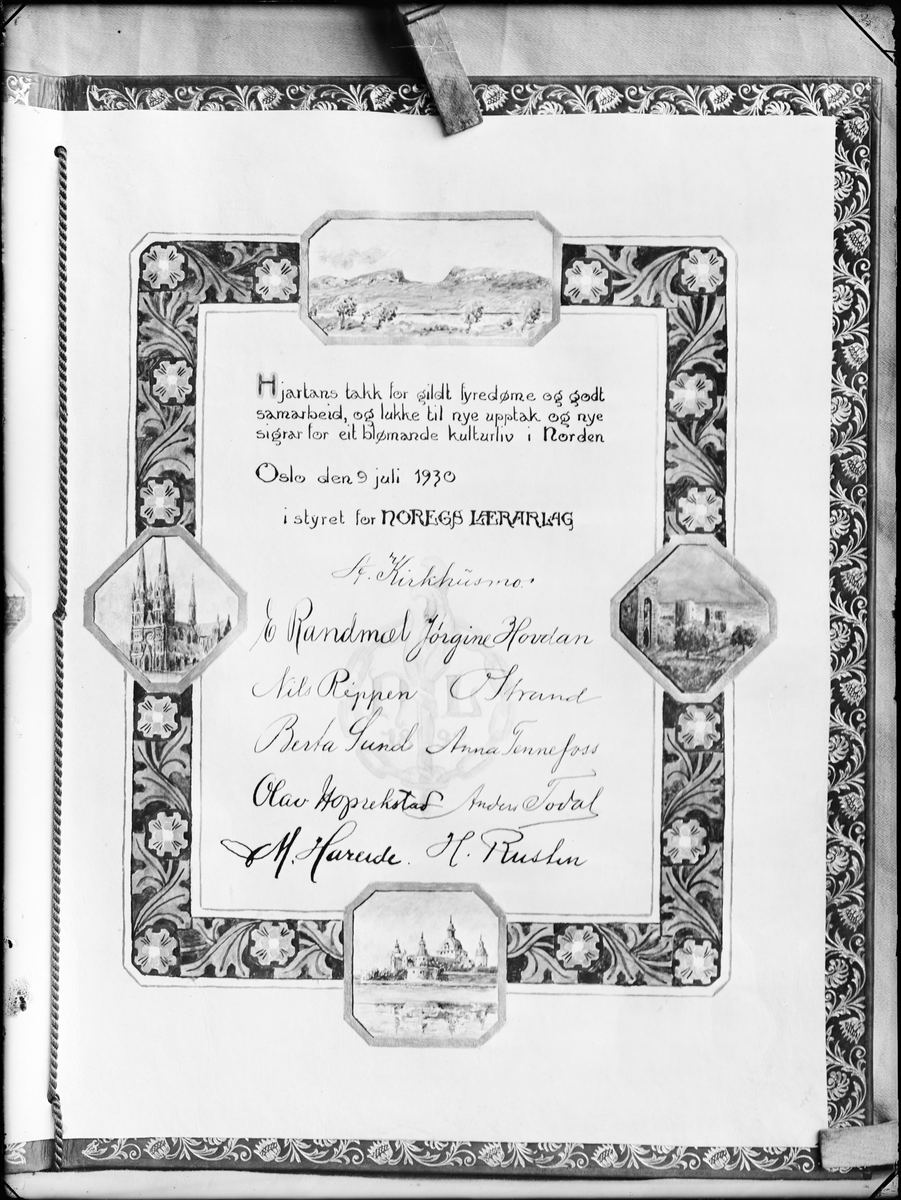 Hjartans takk for gildt fyredøme og godt
samarbeid, og lukke til nye upptak og nye
sigrar for eit blømande kulturliv i Norden
Oslo den 9 juli 1930
i styret for NOREGS LÆRARLAG
Kirkhusmo.
E Randmæl Jørgine Hovdan
Nils Reppen O Strand
Berta Sund Anna Tennefoss
Olav Hoprekstad Anders Todal
M. Hareide. H. Rustin